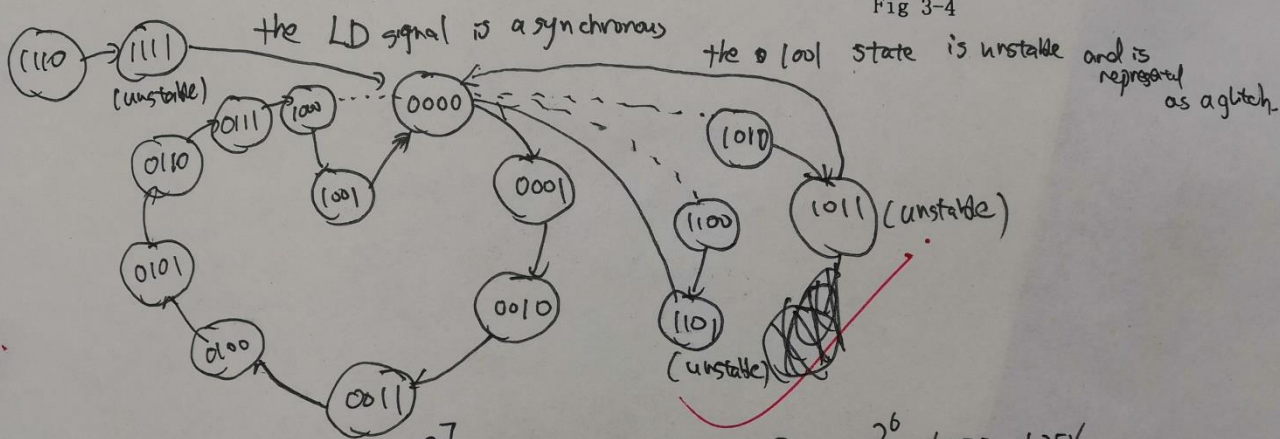 Fig 3-4
the LD signal is asynchronous
the 1001 state is unstable and is
represented
as a glitch.
1110
1111
(unstable)
0000
0111
1000
1010
0110
1001
0001
1100
1011
(unstable)
0101
0010
1101
(unstable)
0100
0011
7
2^6